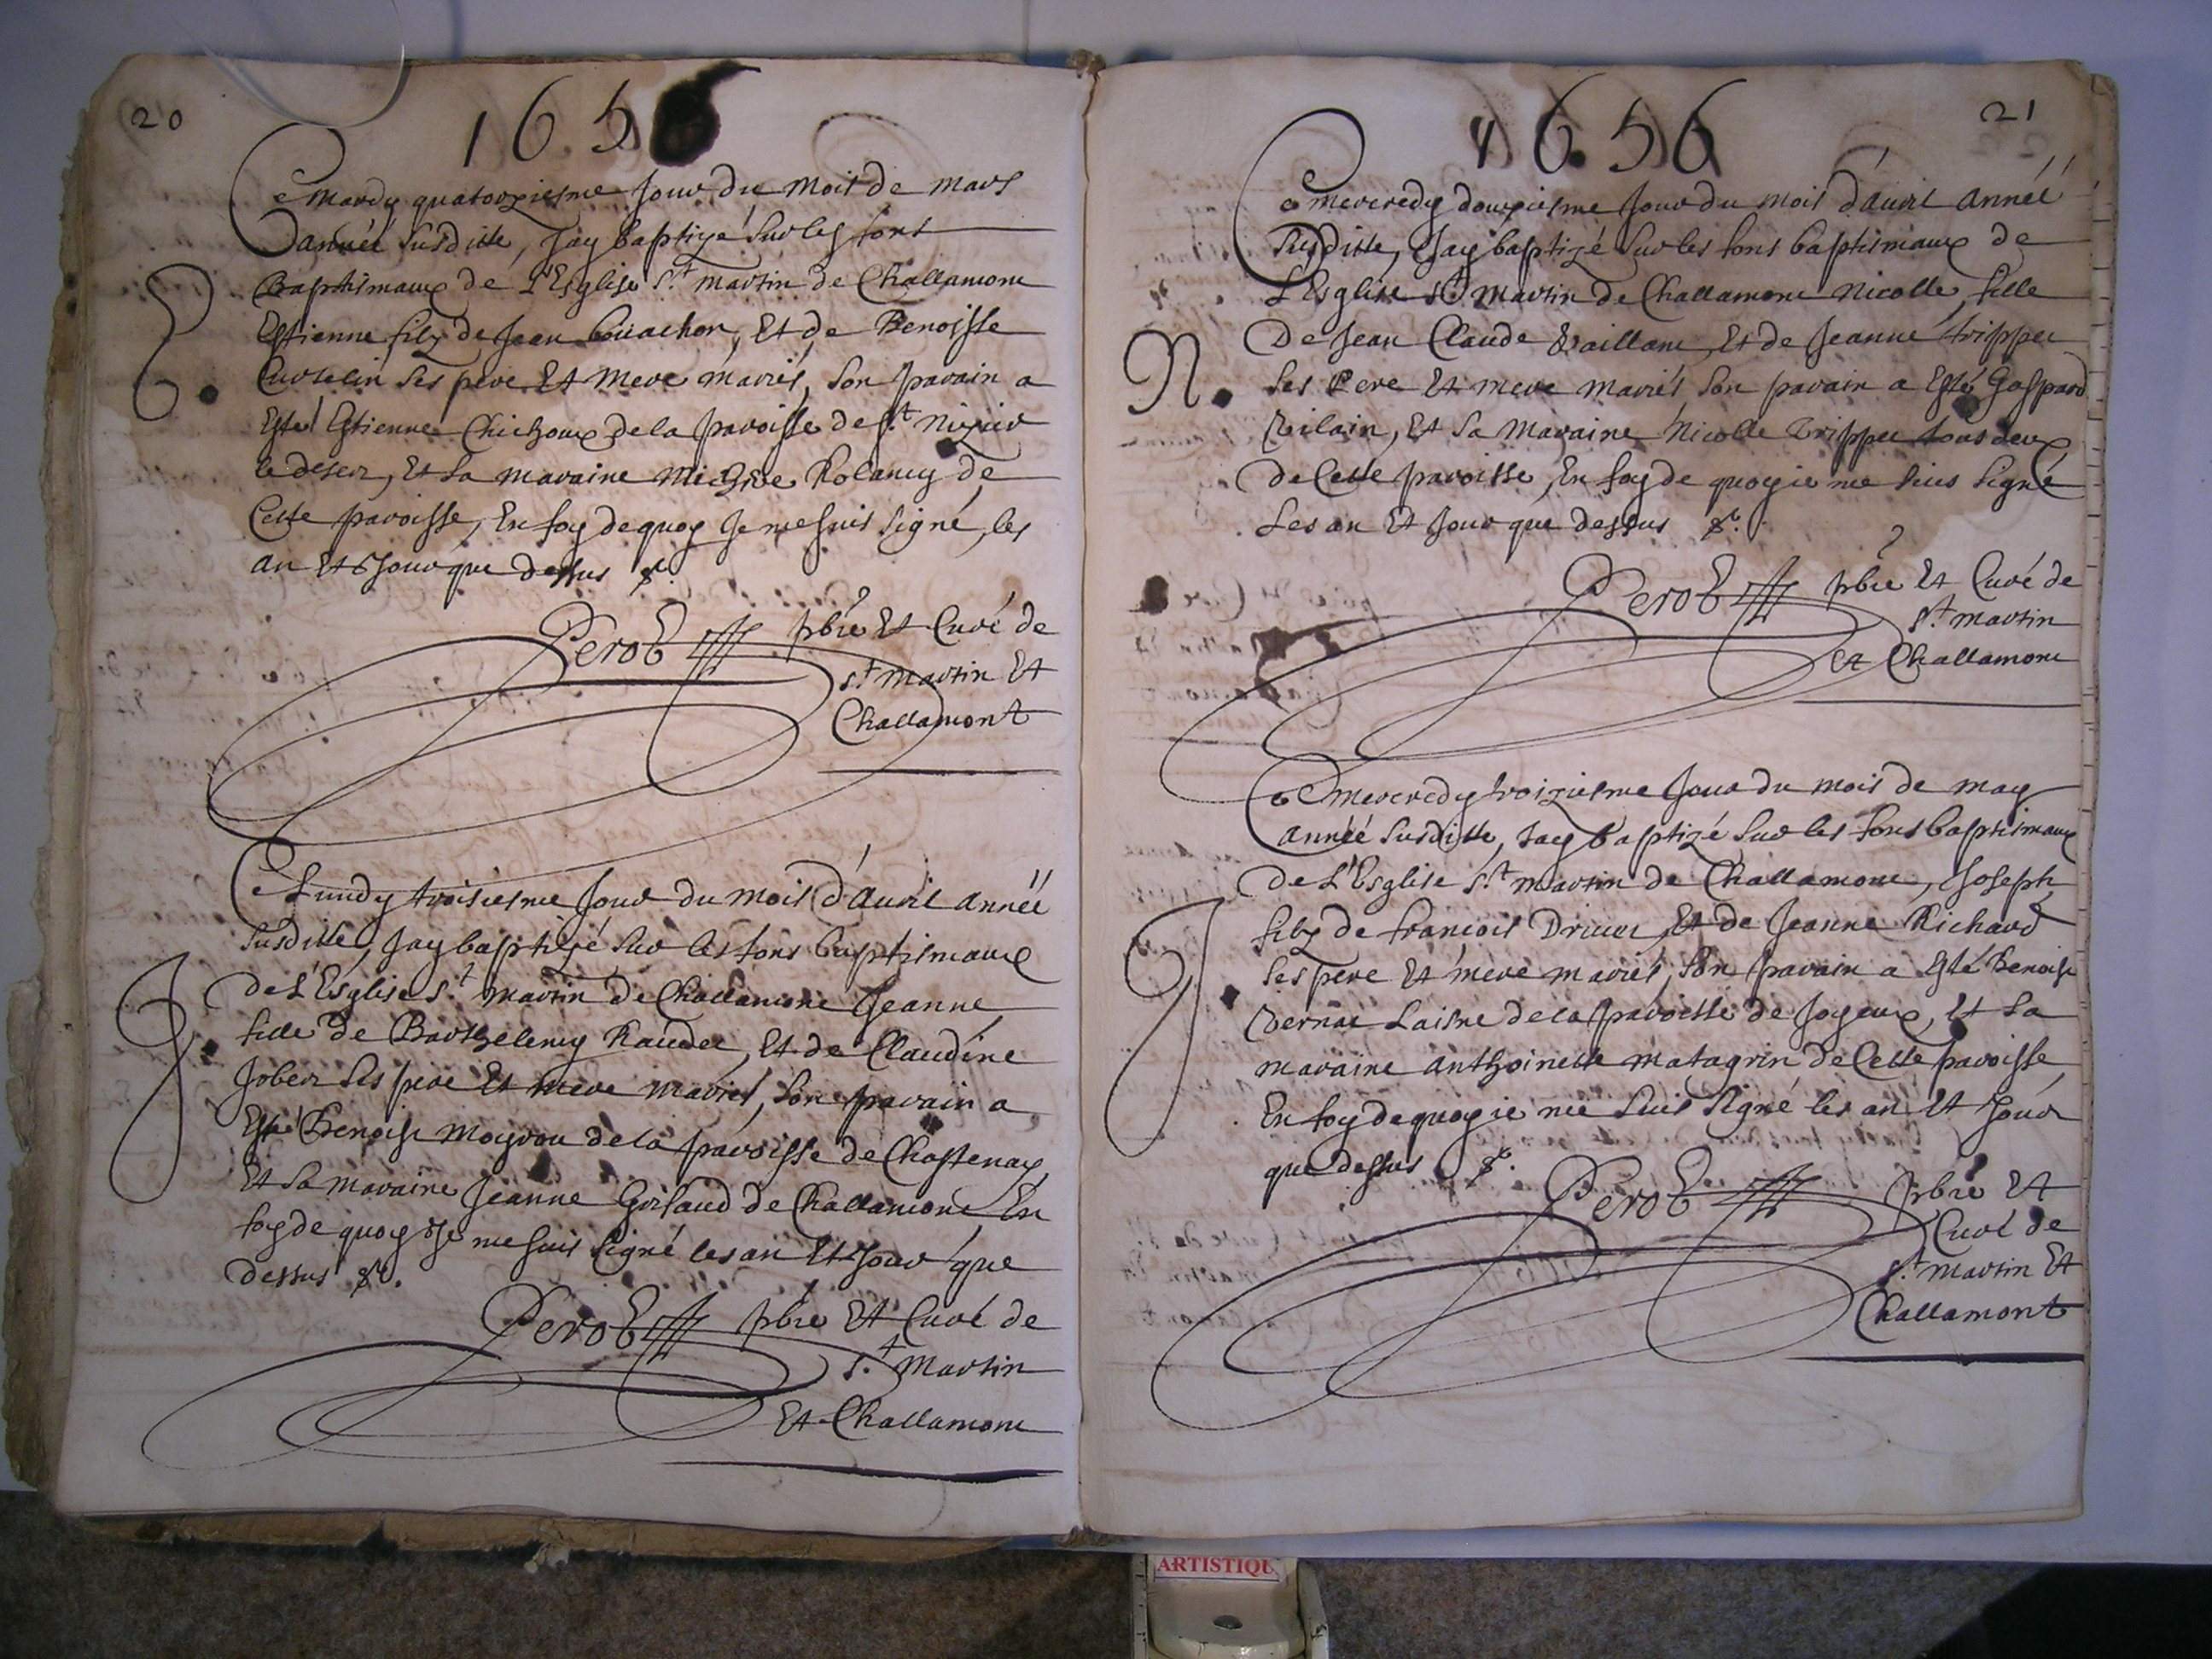 20
1656
Ce mardy quatorziesme Jour du mois de mars
année susditte, Jay baptizé sur les fons
Baptismaux de L'Esglise St. martin de Challamont
E.
Estienne filz de Jean bouachon, Et de Benoisse
Curtelin ses pere Et mere mariés, son parain a
Esté Estienne Chichoux de la paroisse de St. Nizier
le deser, Et sa maraine Rolancy de
Cette paroisse, En foy de quoy Je me suis signé, les
an Et Jour que dessus &c.
Perot pbre Et Curé de
St. martin Et
Challamont
Ce Lundy troisiesme Jour du mois d'avril année
susditte, Jay baptizé sur les fons baptismaux
de L'Esglise St. martin de Challamont Jeanne
J.
fille de Barthelemy Raudet, Et de Claudine
Jober ses pere Et mere mariés, son parain a
Esté Benoist Moyrou de la paroisse de Chastenay,
Et sa maraine Jeanne Goisaud de Challamont En
foy de quoy Je me suis signé les an Et Jour que
dessus &c.
Perot pbre Et Curé de
St. Martin
Et Challamont
21
1656
Ce mercredy douziesme Jour du mois d'avril année
susditte, Jay baptizé sur les fons baptismaux de
L'Esglise St. martin de Challamont Nicolle, fille
De Jean Claude Vaillant, Et de Jeanne trippet
N.
ses Pere Et mere mariés son parain a Esté Gaspard
Vilain, Et sa Maraine Nicolle Trippet tous deux
de Cette paroisse, En foy de quoy ie me suis signé
Les an Et Jour que dessus &c.
Perot pbre Et Curé de
St. martin
Et Challamont
Ce mercredy troiziesme Jour du mois de may
année susditte, Jay baptizé sur les fons baptismaux
de L'Esglise St. martin de Challamont, Joseph
J.
filz de francois Drivet, Et de Jeanne Richard
ses pere Et mere mariés, son parain a Esté Benoist
Vernat Laisne de la paroisse de Joyeux, Et sa
maraine anthoinette matagrin de Cette paroisse
En foy de quoy ie me suis signé les an Et Jour
que dessus &c.
Perot pbre Et
Curé de
St. martin Et
Challamont
ARTISTIQU